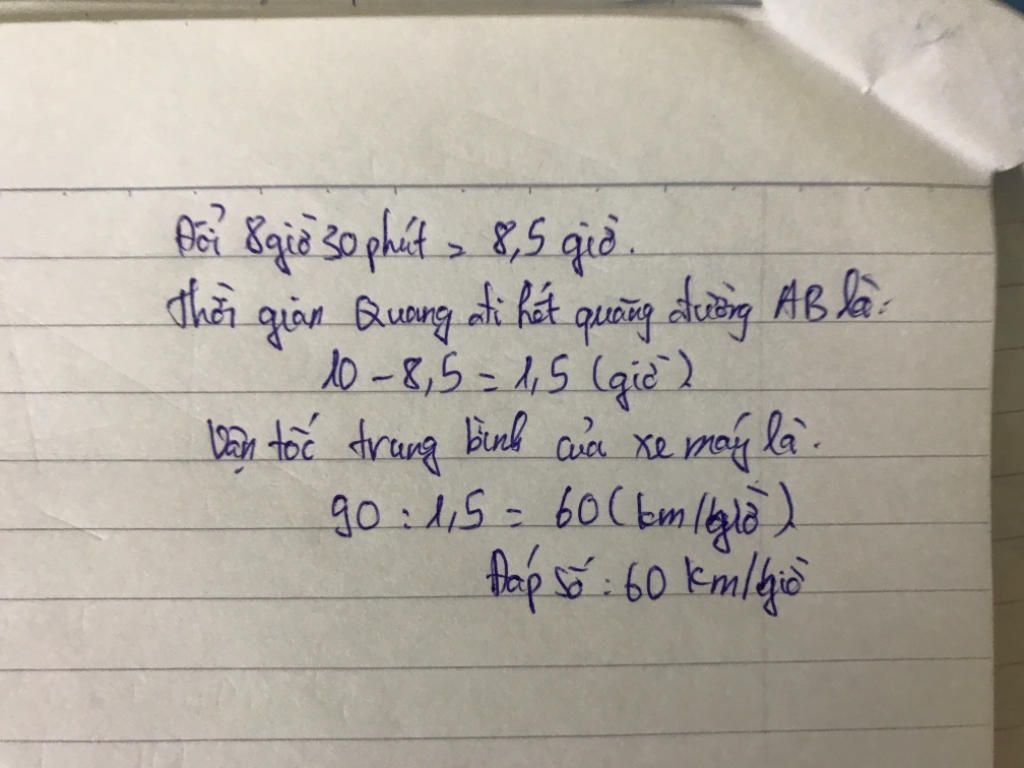 Đổi 8 giờ 30 phút = 8,5 giờ.
Thời gian Quang đi hết quãng đường AB là:
10 - 8,5 = 1,5 (giờ)
Vận tốc trung bình của xe máy là.
90 : 1,5 = 60 (km/giờ)
Đáp số : 60 km/giờ